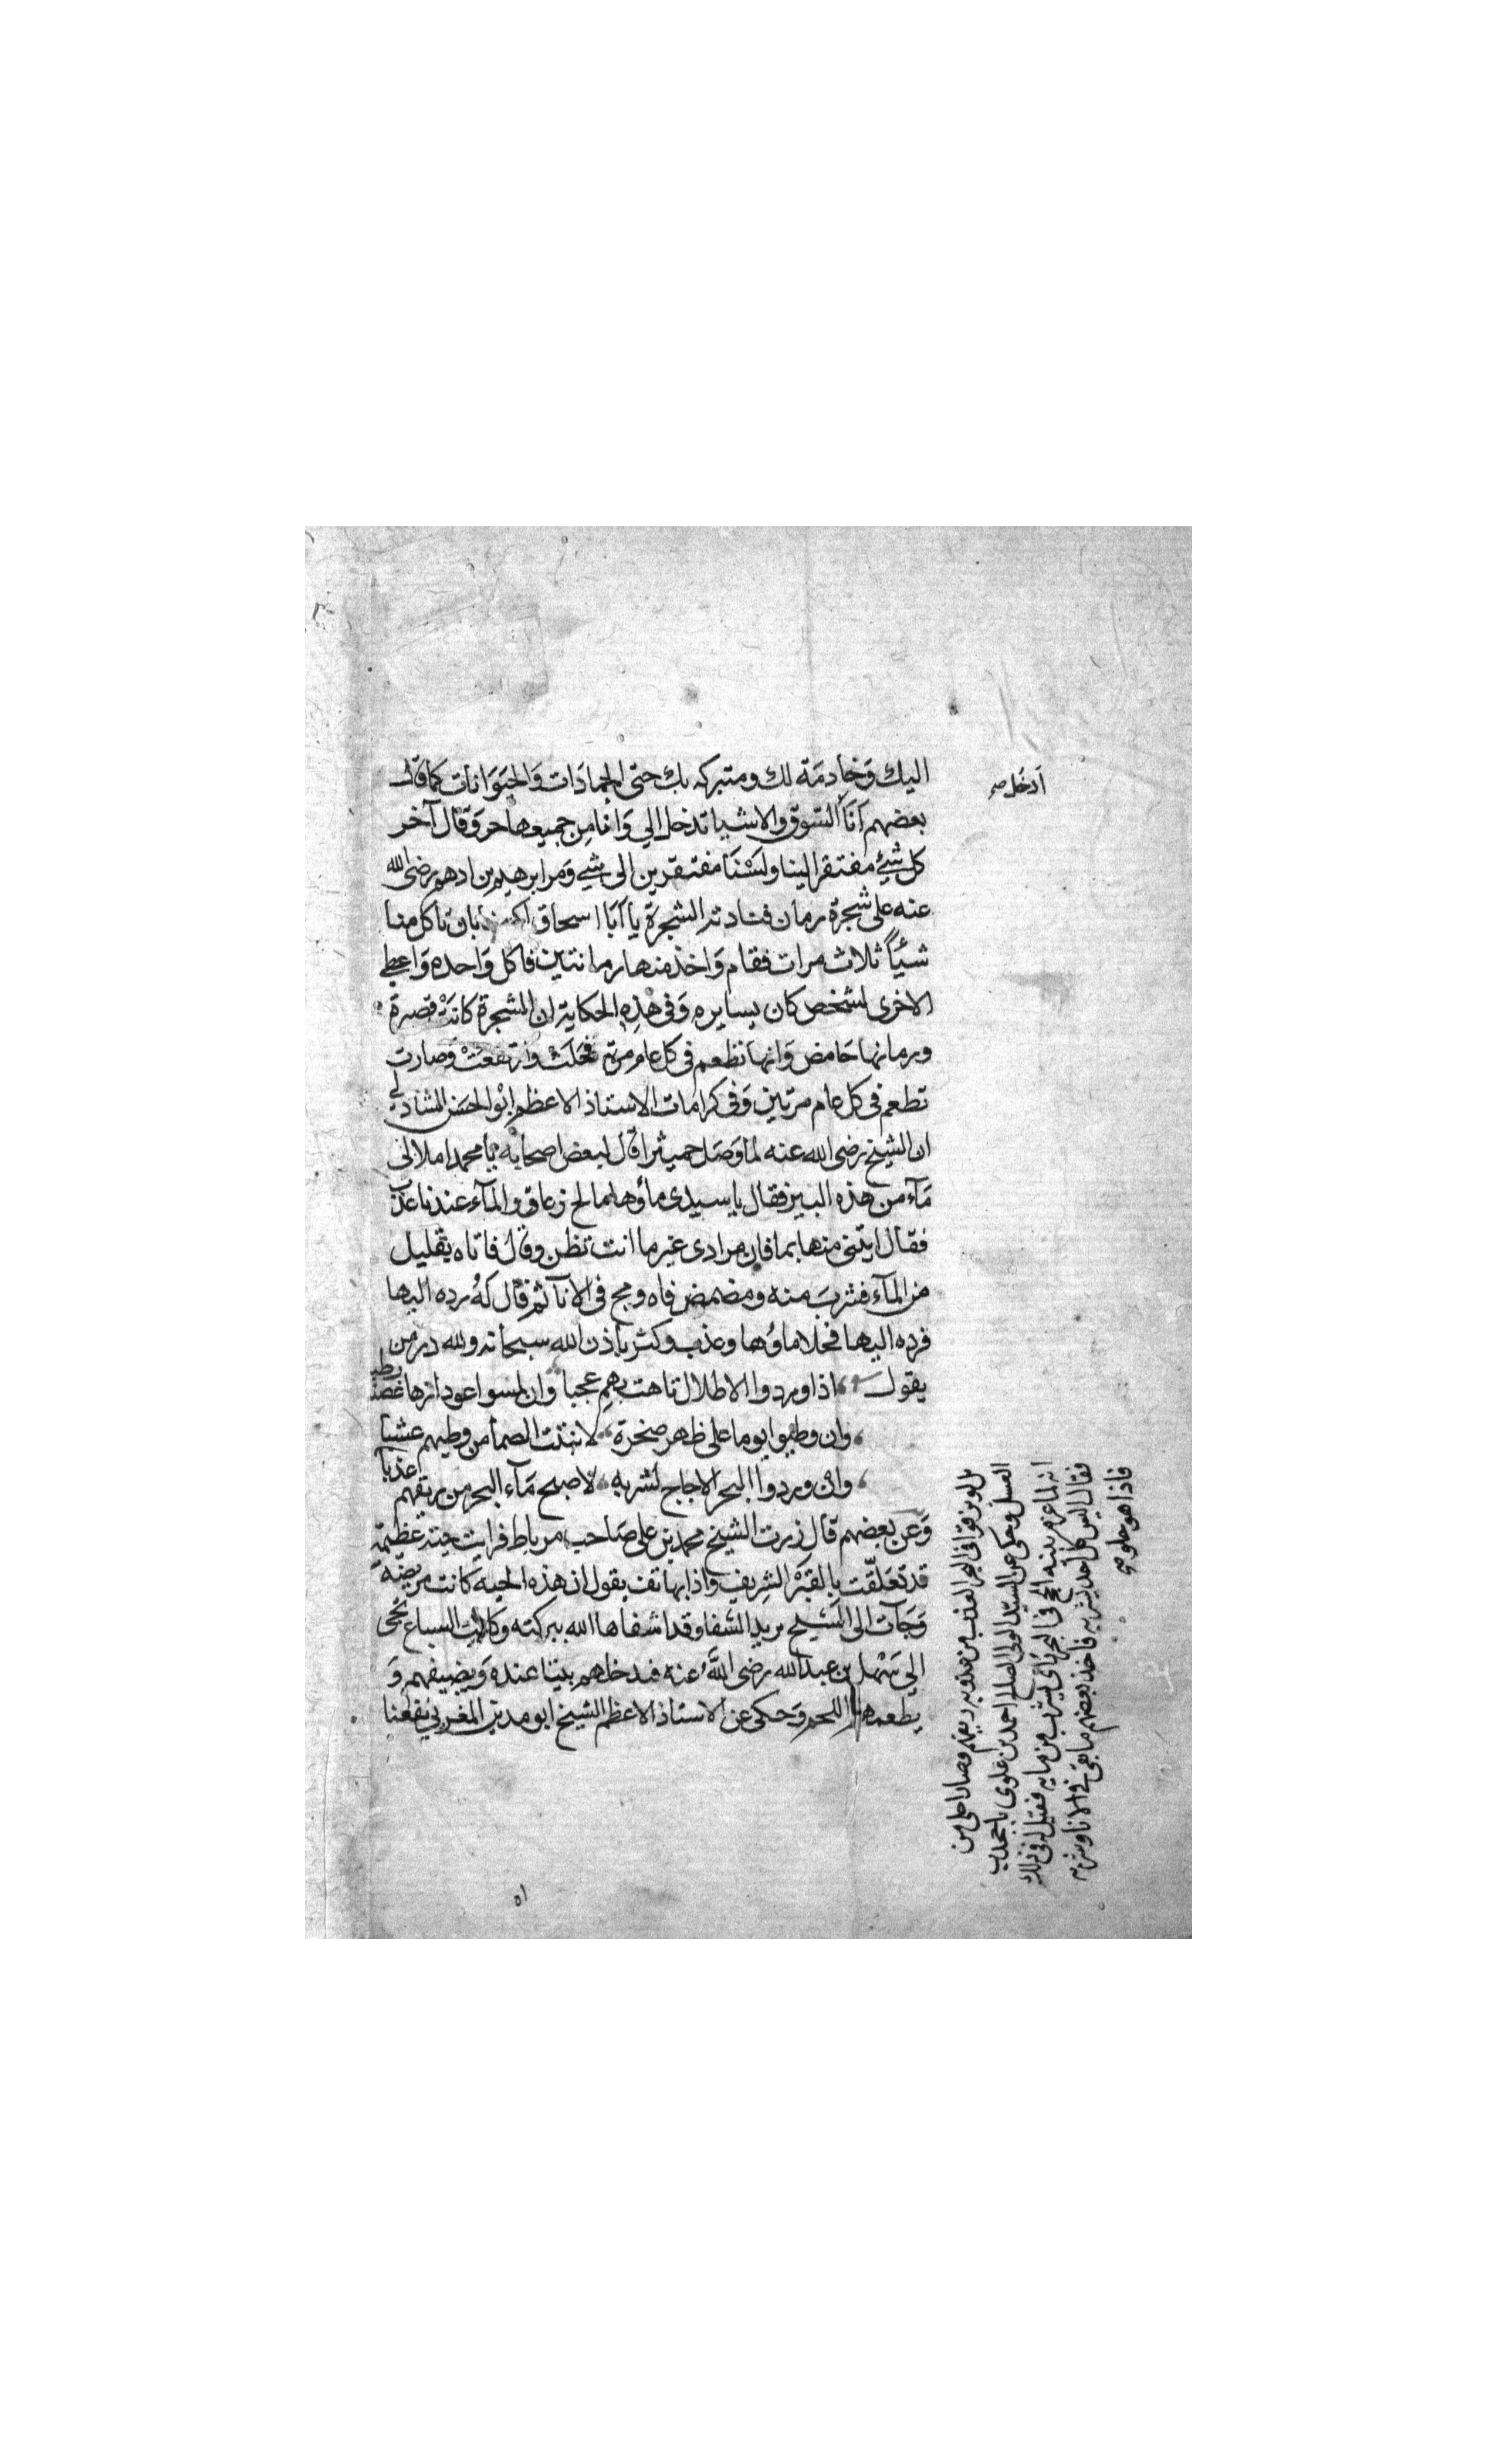 اليك وَخادِمَة لك ومتبركه بك حتى الجمادَات وَالحيَوَانات كما قال
بعضهم اَنَا السّوق والاشيا تدخل الي وَانا من جميعها حر وَقال آخر
كل شيئ مفتقر الينا ولسْنَا مفتقرين الى شيي وَمر ابرهيم بن ادهم رضى الله
عنه على شجرة رمان فنادته الشجرة يا اَبَا اسحاق بان تاكل منا
شيئاً ثلاث مرات فقام وَاخذ منها رمانتين فاكل وَاحده وَاعطى
الاخرى لشخص كان يسايره وَفى هذِه الحكاية ان الشجرة كانَتْ قصيرة
ورمانها حَامض وَانها تطعم فى كل عام مرة فحَلَتْ وَارتفعَتْ وَصارت
تطعم فى كل عام مرتين وَفى كرامات الاستاذ الاعظم ابوالحسَن الشاذلي
ان الشيخ رضى الله عنه لما وَصَل حميثرا قال لبعض اصحابه يا محمد املا لى
مَآء من هذه البير فقال يا سيدى ماؤها مالح زعاق والمآء عندنا عذب
فقال ايتنى منها بما فان مرادى غير ما انت تظن وقال فاتاه بقليل
من المآء فشربَ منه ومضمض فاه ومج فى الانآ ثم قال لهُ رده اليها
فرده اليها فحلا ماوُها وعذب وكثر باذن الله سبحانه ولله در من
يقول اذا وردوا الاطلال تاهت بهم عجبا وان لمسوا عودا زها غصنا رطبا
وان وطيوا يوما على ظهر صخرة لانبتت الصما من وطيهم عشبا
وان وردوا البحر الاجاج لشربه لاصبح مَآء البحر من ريقهم عذبا
وَعن بعضهم قال زرت الشيخ محمد بن على صَاحب مرباط فرايت حية عظيمة
قد تعَلّقت بالقبْر الشرِيف واذا بهاتف يقول ان هذه الحيه كانت مريضة
وَجآت الى الشيخ بريد الشفا وقد اشفاها الله ببركته وَكانت السباع تجى
الي سَهْل بن عبد الله رضى اللهُ عنه فيدخلهم بيتا عنده وَيضيفهم وَ
يطعمهم اللحم وَحكى عن الاستاذ الاعظم الشيخ ابو مدين المغربي نفعنا
اَدخل صح
بل لو بزقوا فى البحر العذب من عذوبه ريقهم وصار احلى من
العسل وحكى عن السيد الولى الصلح احمد بن علوى باجحدب
انه لما عزم الحج فى البحر راى يشرب من مايه فقيل له فى ذلك
فقال ليس كل احد يشربه فاخذ بعضهم ما بقى فى الانا وشربه
فاذا هو حلو صح
اه